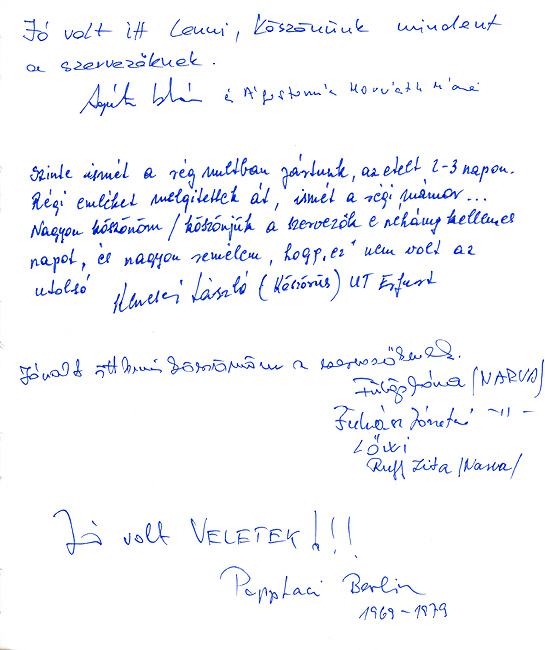 Jó volt itt lenni, köszönünk mindent
a szervezőknek.
és Ágostonné Horváth Mária
Szinte ismét a rég multban jártunk, az etelt 2-3 napon.
Régi emléket melegitettek át, ismét a régi mámor...
Nagyon köszönöm / köszönjük a szervezők e nehány kellemes
napot, és nagyon remélem, hogy "ez" nem volt az
utolsó
Kencsei László (Köszörüs) UT Erfurt
Jó volt itt lenni köszönöm a szervezőknek.
Fülöp Ilona (NARVA)
Juhász Józsefné -"-
Lőxi
Ruff Zita /Narva/
Jó volt VELETEK!!!
Papp Laci Berlin
1969-1979